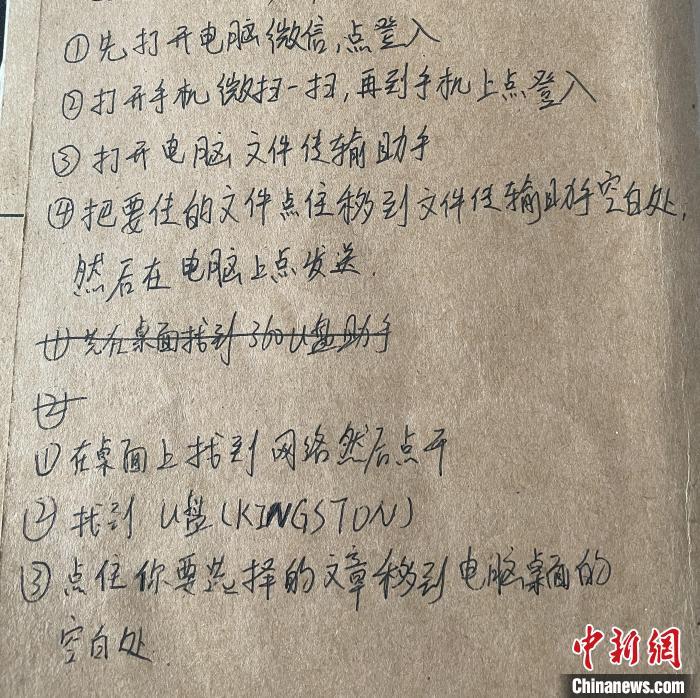 ①先打开电脑微信,点登入
②打开手机微扫一扫,再到手机上点登入
③打开电脑文件传输助手
④把要传的文件点住移到文件传输助手空白处,
然后在电脑上点发送.
①先在桌面找到360U盘助手
②
①在桌面上找到网络然后点开
②找到U盘(KINGSTON)
③点住你要选择的文章移到电脑桌面的
空白处.
中新网
Chinanews.com